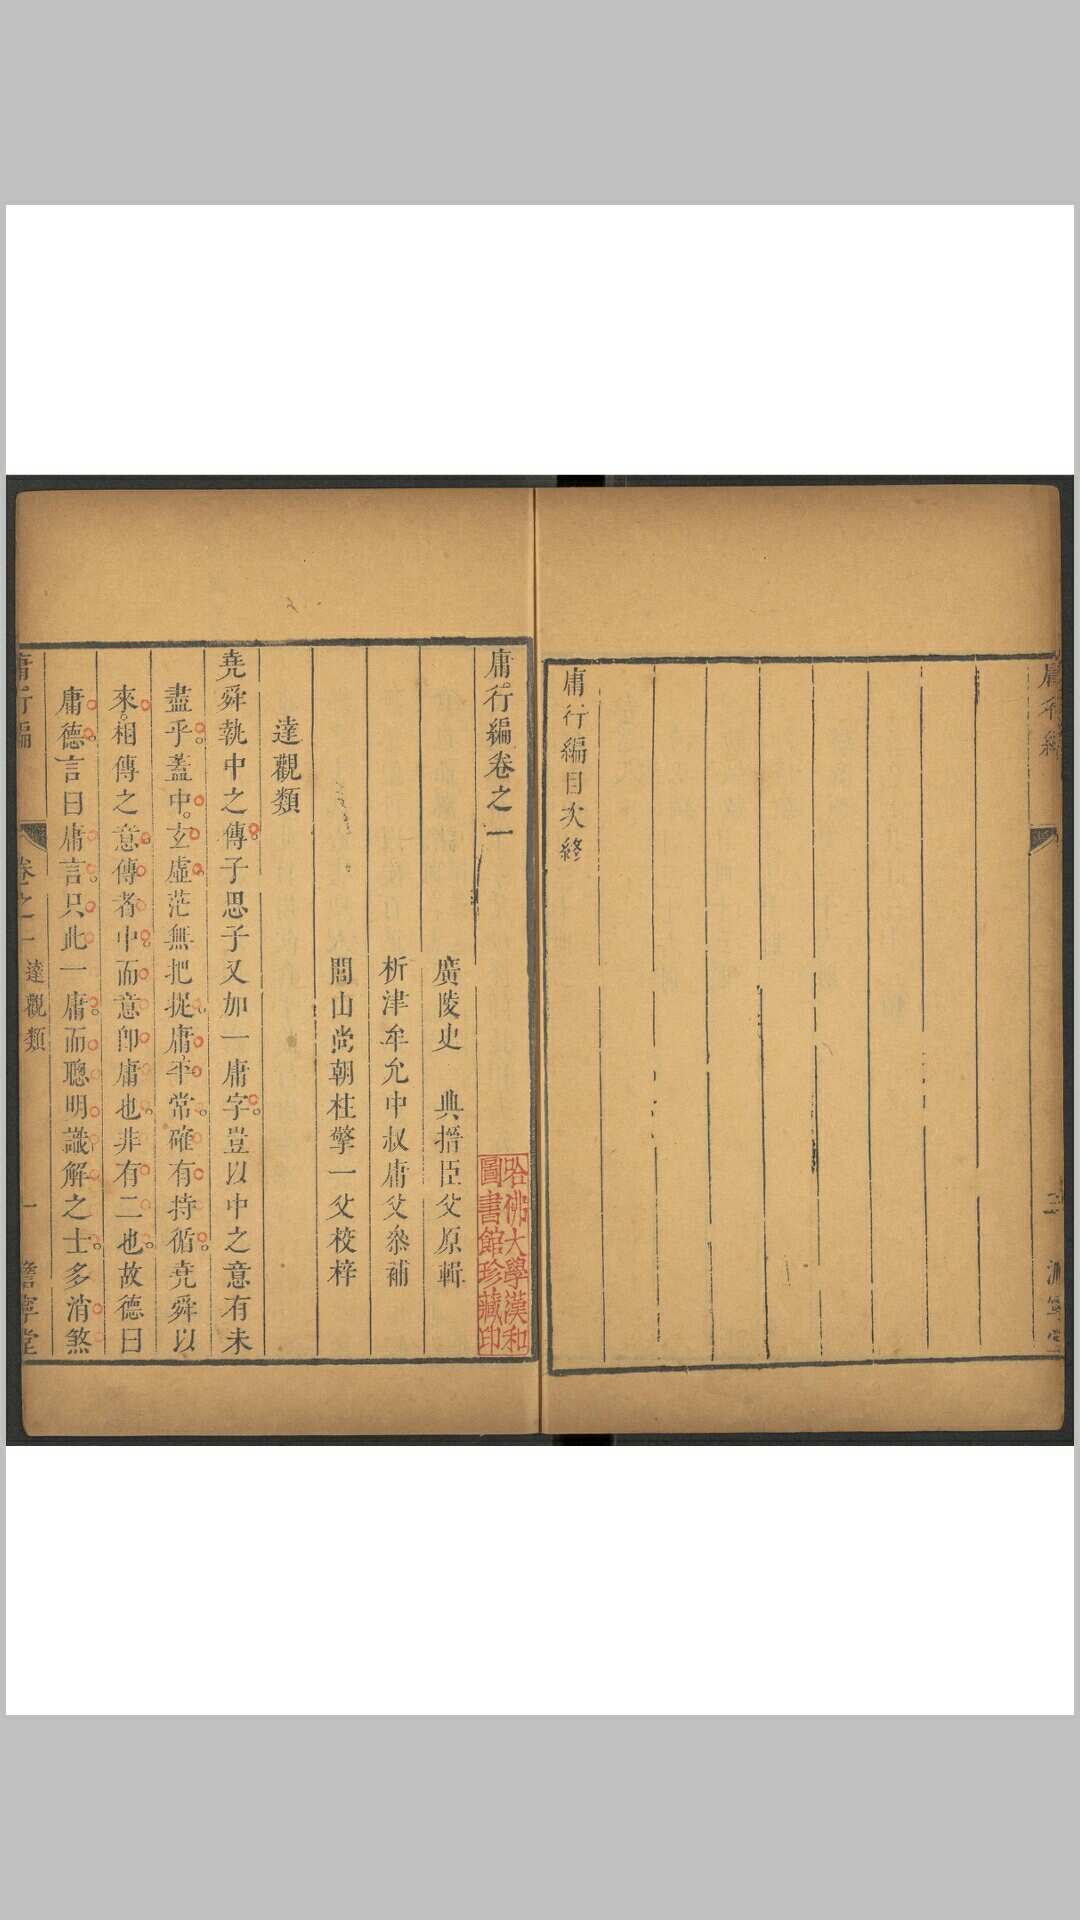 庸行編
三
澹寧堂
庸行編目次終
庸行編卷之一
廣陵史　典搢臣父原輯
析津牟允中叔庸父叅補
閭山尚朝柱擎一父校梓
達觀類
堯舜執中之傳子思子又加一庸字豈以中之意有未
盡乎葢中玄虛茫無把捉庸平常確有持循堯舜以
來相傳之意傳者中而意卽庸也非有二也故德曰
庸德言曰庸言只此一庸而聰明識解之士多消煞
庸行編
卷之一
達觀類
一
澹寧堂
哈佛大學漢和
圖書館珍藏印